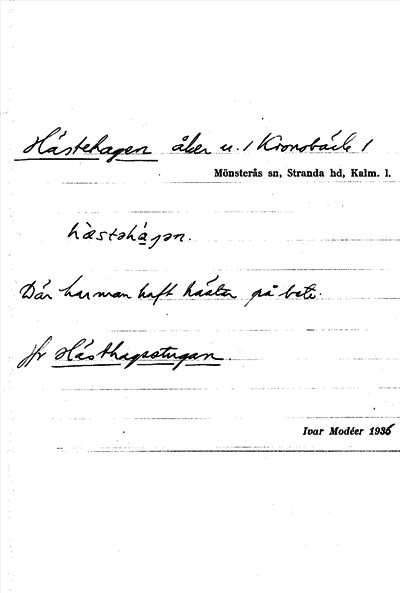 Hästehagen åker u. 1 Kronobäck 1
Mönsterås sn, Stranda hd, Kalm. l.
hæstəhàgən.
Där har man haft hästar på bete.
Jfr Hästhagsstugan.
Ivar Modéer 1936